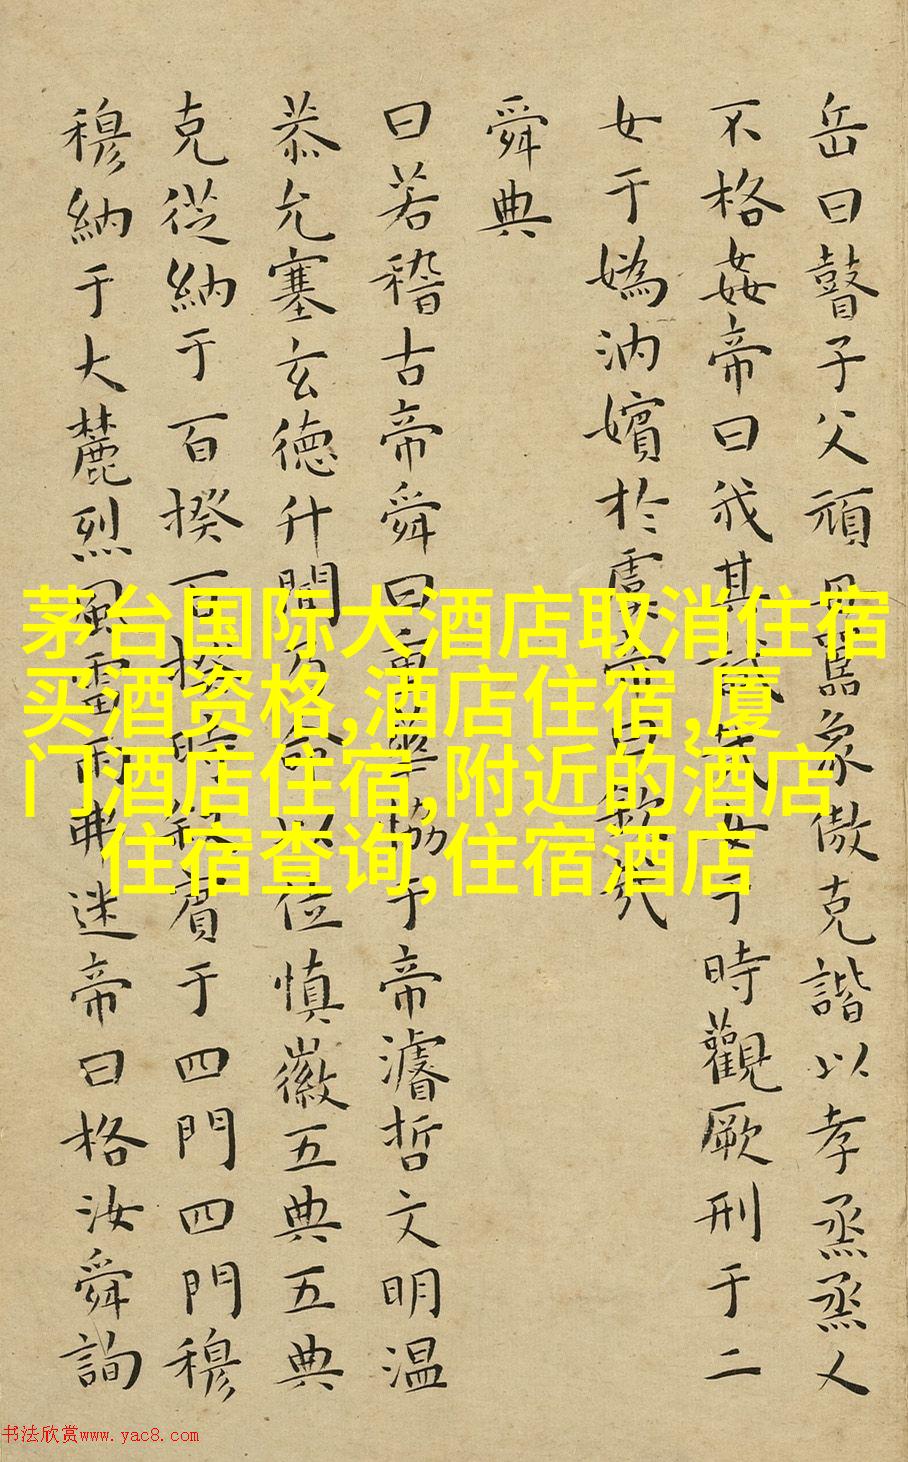 岳曰瞽子父頑母嚚象傲克諧以孝烝烝乂
不格姦帝曰我其試哉女于時觀厥刑于二
女于媯汭嬪於虞帝曰欽哉
舜典
曰若稽古帝舜曰重華協于帝濬哲文明温
恭允塞玄德升聞乃命以位慎徽五典五典
克從納于百揆百揆時敘賓于四門四門穆
穆納于大麓烈風雷雨弗迷帝曰格汝舜詢
茅台国际大酒店取消住宿
买酒资格,酒店住宿,厦
门酒店住宿,附近的酒店
住宿查询,住宿酒店
书法欣赏www.yac8.com